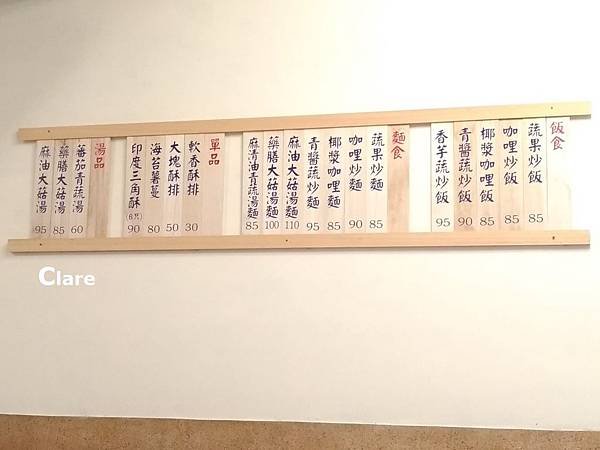 飯食
蔬果炒飯 85
咖哩炒飯 85
椰漿咖哩飯 85
青醬蔬炒飯 90
香芋蔬炒飯 95
麵食
蔬果炒麵 85
咖哩炒麵 90
椰漿咖哩麵 85
青醬蔬炒麵 95
麻油大菇湯麵 110
藥膳大菇湯麵 100
麻清油青蔬湯麵 85
單品
軟香酥排 30
大塊酥排 50
海苔薯蔓 80
印度三角酥(6片) 90
湯品
蕃茄青蔬湯 60
藥膳大菇湯 85
麻油大菇湯 95
Clare